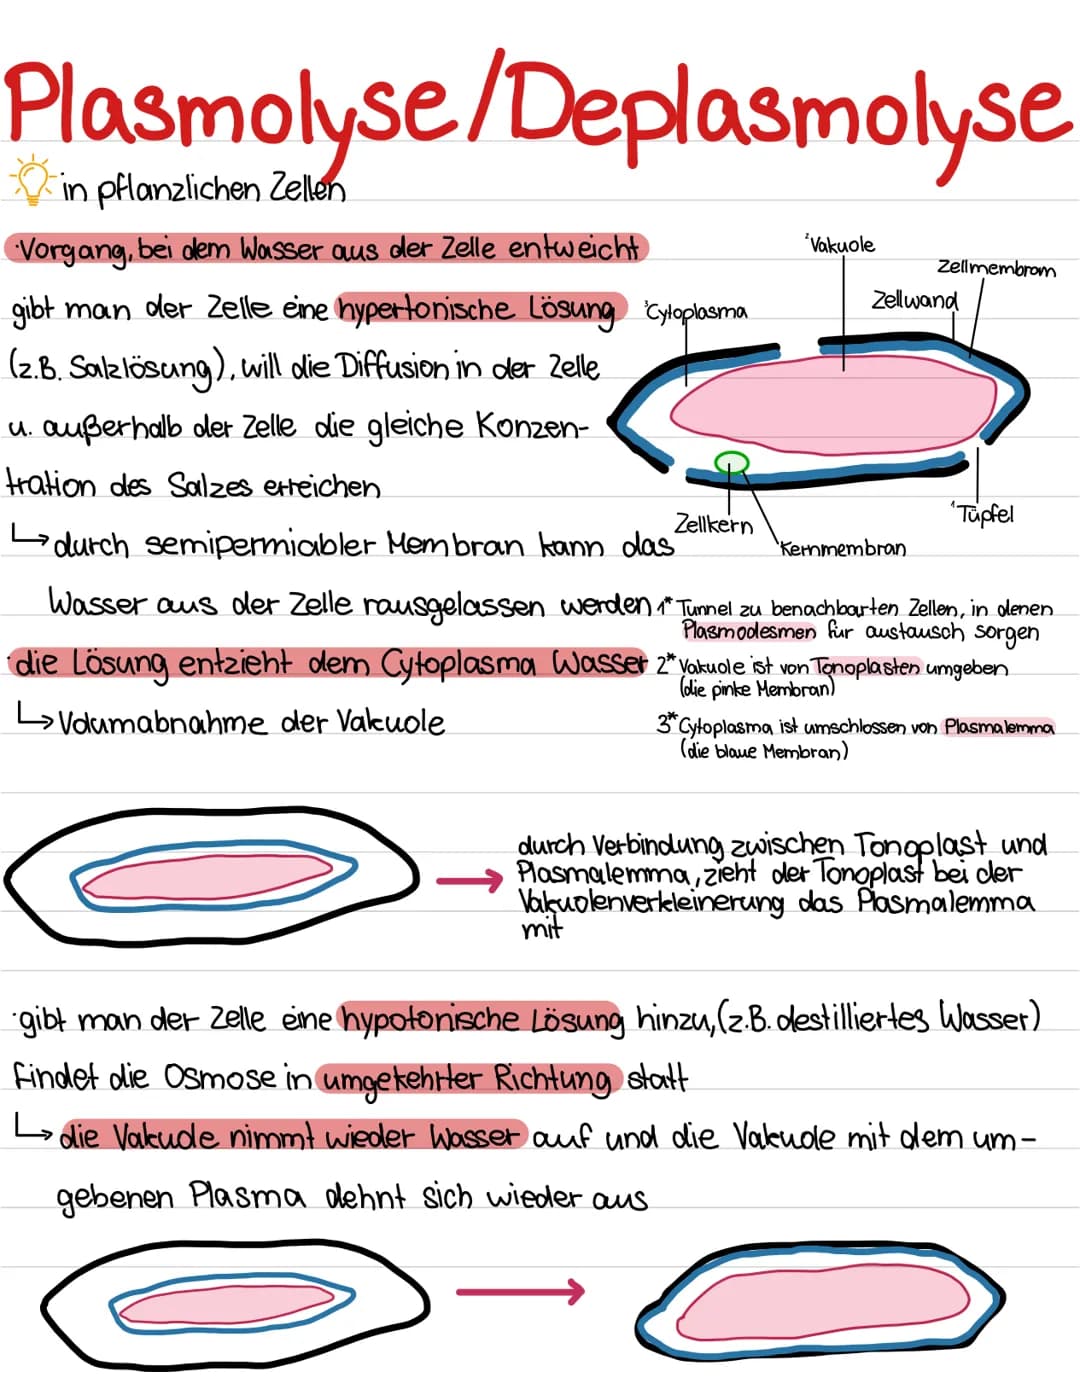 Plasmolyse/Deplasmolyse
in pflanzlichen Zellen
·Vorgang, bei dem Wasser aus der Zelle entweicht
gibt man der Zelle eine hypertonische Lösung
(z.B. Salzlösung), will die Diffusion in der Zelle
u. außerhalb der Zelle die gleiche Konzen-
tration des Salzes erreichen
↳ durch semipermiabler Membran kann das
Wasser aus der Zelle rausgelassen werden
·die Lösung entzieht dem Cytoplasma Wasser
↳ Volumabnahme der Vakuole
²Vakuole
Zellmembram
Zellwand
³Cytoplasma
Zellkern
Kernmembran
¹Tüpfel
1* Tunnel zu benachbarten Zellen, in denen
Plasmodesmen für austausch sorgen
2* Vakuole ist von Tonoplasten umgeben
(die pinke Membran)
3* Cytoplasma ist umschlossen von Plasmalemma
(die blaue Membran)
durch Verbindung zwischen Tonoplast und
Plasmalemma, zieht der Tonoplast bei der
Vakuolenverkleinerung das Plasmalemma
mit
·gibt man der Zelle eine hypotonische Lösung hinzu, (z.B. destilliertes Wasser)
findet die Osmose in umgekehrter Richtung statt
↳ die Vakuole nimmt wieder Wasser auf und die Vakuole mit dem um-
gebenen Plasma dehnt sich wieder aus